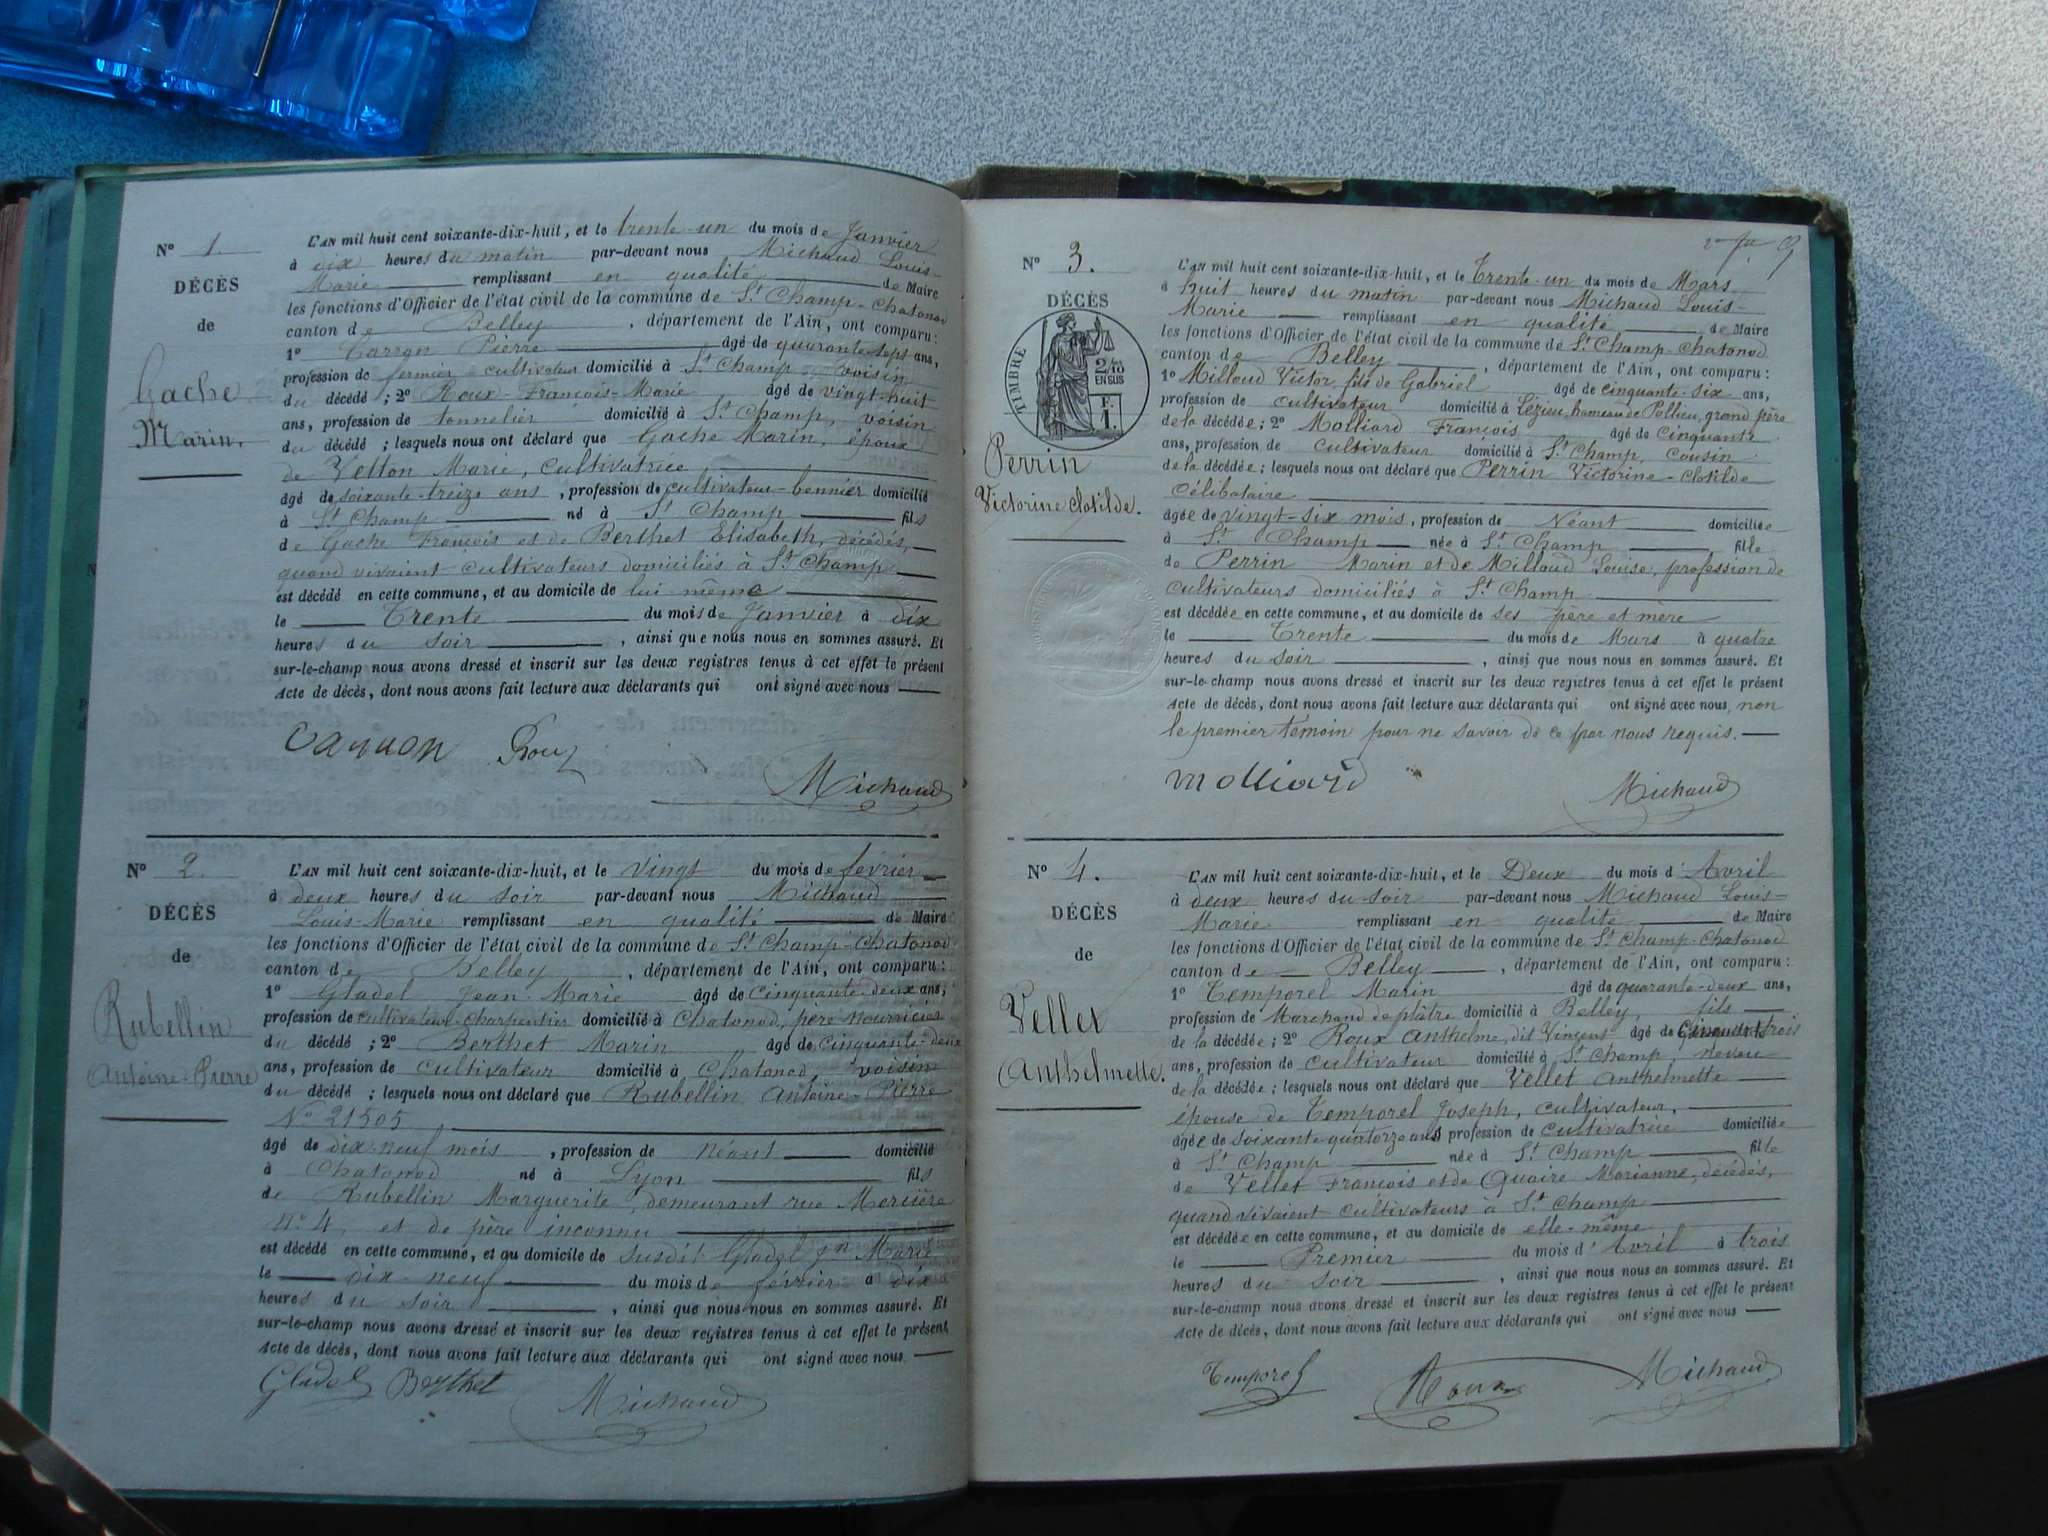 N° 1.
DÉCÈS
de
Gache
Marin.
L'AN mil huit cent soixante-dix-huit, et le trente-un du mois de Janvier
à dix heures du matin par-devant nous Michaud Louis-
Marie remplissant en qualité de Maire
les fonctions d'Officier de l'état civil de la commune de St Champ-Chatonod
canton de Belley, département de l'Ain, ont comparu:
1° Carron Pierre âgé de quarante-sept ans,
profession de fermier-cultivateur domicilié à St Champ, voisin
du décédé; 2° Roux François-Marie âgé de vingt-huit
ans, profession de tonnelier domicilié à St Champ, voisin
du décédé; lesquels nous ont déclaré que Gache Marin, époux
de Vetton Marie, cultivatrice
âgé de soixante-treize ans, profession de cultivateur-bennier domicilié
à St Champ né à St Champ fils
de Gache François et de Berthet Elisabeth, décédés,
quand vivaient cultivateurs domiciliés à St Champ
est décédé en cette commune, et au domicile de lui-même
le Trente du mois de Janvier à dix
heures du soir, ainsi que nous nous en sommes assuré. Et
sur-le-champ nous avons dressé et inscrit sur les deux registres tenus à cet effet le présent
Acte de décès, dont nous avons fait lecture aux déclarants qui ont signé avec nous
Roux
Michaud
N° 2.
DÉCÈS
de
Rubellin
Antoine-Pierre
L'AN mil huit cent soixante-dix-huit, et le vingt du mois de février
à deux heures du soir par-devant nous Michaud
Louis-Marie remplissant en qualité de Maire
les fonctions d'Officier de l'état civil de la commune de St Champ-Chatonod
canton de Belley, département de l'Ain, ont comparu:
1° Gladel Jean-Marie âgé de cinquante-deux ans,
profession de cultivateur-charpentier domicilié à Chatonod, père nourricier
du décédé; 2° Berthet Marin âgé de cinquante-deux
ans, profession de cultivateur domicilié à Chatonod, voisin
du décédé; lesquels nous ont déclaré que Rubellin Antoine-Pierre
N° 21505
âgé de dix-neuf mois, profession de néant domicilié
à Chatonod né à Lyon fils
de Rubellin Marguerite, demeurant rue Mercière
n° 4, et de père inconnu
est décédé en cette commune, et au domicile de susdit Gladel Jn Marie
le dix-neuf du mois de février à dix
heures du soir, ainsi que nous nous en sommes assuré. Et
sur-le-champ nous avons dressé et inscrit sur les deux registres tenus à cet effet le présent
Acte de décès, dont nous avons fait lecture aux déclarants qui ont signé avec nous
Gladel Berthet Michaud
N° 3.
DÉCÈS
TIMBRE
2/10
EN SUS
F.
1.
Perrin
Victorine Clotilde.
L'AN mil huit cent soixante-dix-huit, et le Trente-un du mois de Mars
à huit heures du matin par-devant nous Michaud Louis-
Marie remplissant en qualité de Maire
les fonctions d'Officier de l'état civil de la commune de St Champ-Chatonod
canton de Belley, département de l'Ain, ont comparu:
1° Milloud Victor, fils de Gabriel âgé de cinquante-six ans,
profession de cultivateur domicilié à Lézieu, hameau de Pollieu, grand père
de la décédée; 2° Molliard François âgé de cinquante
ans, profession de cultivateur domicilié à St Champ, cousin
de la décédée; lesquels nous ont déclaré que Perrin Victorine-Clotilde
célibataire
âgée de vingt-six mois, profession de Néant domiciliée
à St Champ née à St Champ fille
de Perrin Marin et de Milloud Louise, profession de
cultivateurs domiciliés à St Champ
est décédée en cette commune, et au domicile de ses père et mère
le Trente du mois de Mars à quatre
heures du soir, ainsi que nous nous en sommes assuré. Et
sur-le-champ nous avons dressé et inscrit sur les deux registres tenus à cet effet le présent
Acte de décès, dont nous avons fait lecture aux déclarants qui ont signé avec nous, non
le premier témoin pour ne savoir de ce par nous requis.
Molliard
Michaud
N° 4.
DÉCÈS
de
Vellet
Anthelmette.
L'AN mil huit cent soixante-dix-huit, et le Deux du mois d'Avril
à deux heures du soir par-devant nous Michaud Louis-
Marie remplissant en qualité de Maire
les fonctions d'Officier de l'état civil de la commune de St Champ-Chatonod
canton de Belley, département de l'Ain, ont comparu:
1° Temporel Marin âgé de quarante-deux ans,
profession de Marchand de plâtre domicilié à Belley, fils
de la décédée; 2° Roux Anthelme, dit Vincent âgé de Cinquante trois
ans, profession de cultivateur domicilié à St Champ, neveu
de la décédée; lesquels nous ont déclaré que Vellet Anthelmette
épouse de Temporel Joseph, cultivateur,
âgée de soixante-quatorze ans, profession de cultivatrice domiciliée
à St Champ née à St Champ fille
de Vellet François et de Quaire Marianne, décédés,
quand vivaient cultivateurs à St Champ
est décédée en cette commune, et au domicile de elle-même
le Premier du mois d'Avril à trois
heures du soir, ainsi que nous nous en sommes assuré. Et
sur-le-champ nous avons dressé et inscrit sur les deux registres tenus à cet effet le présent
Acte de décès, dont nous avons fait lecture aux déclarants qui ont signé avec nous
Temporel Roux Michaud